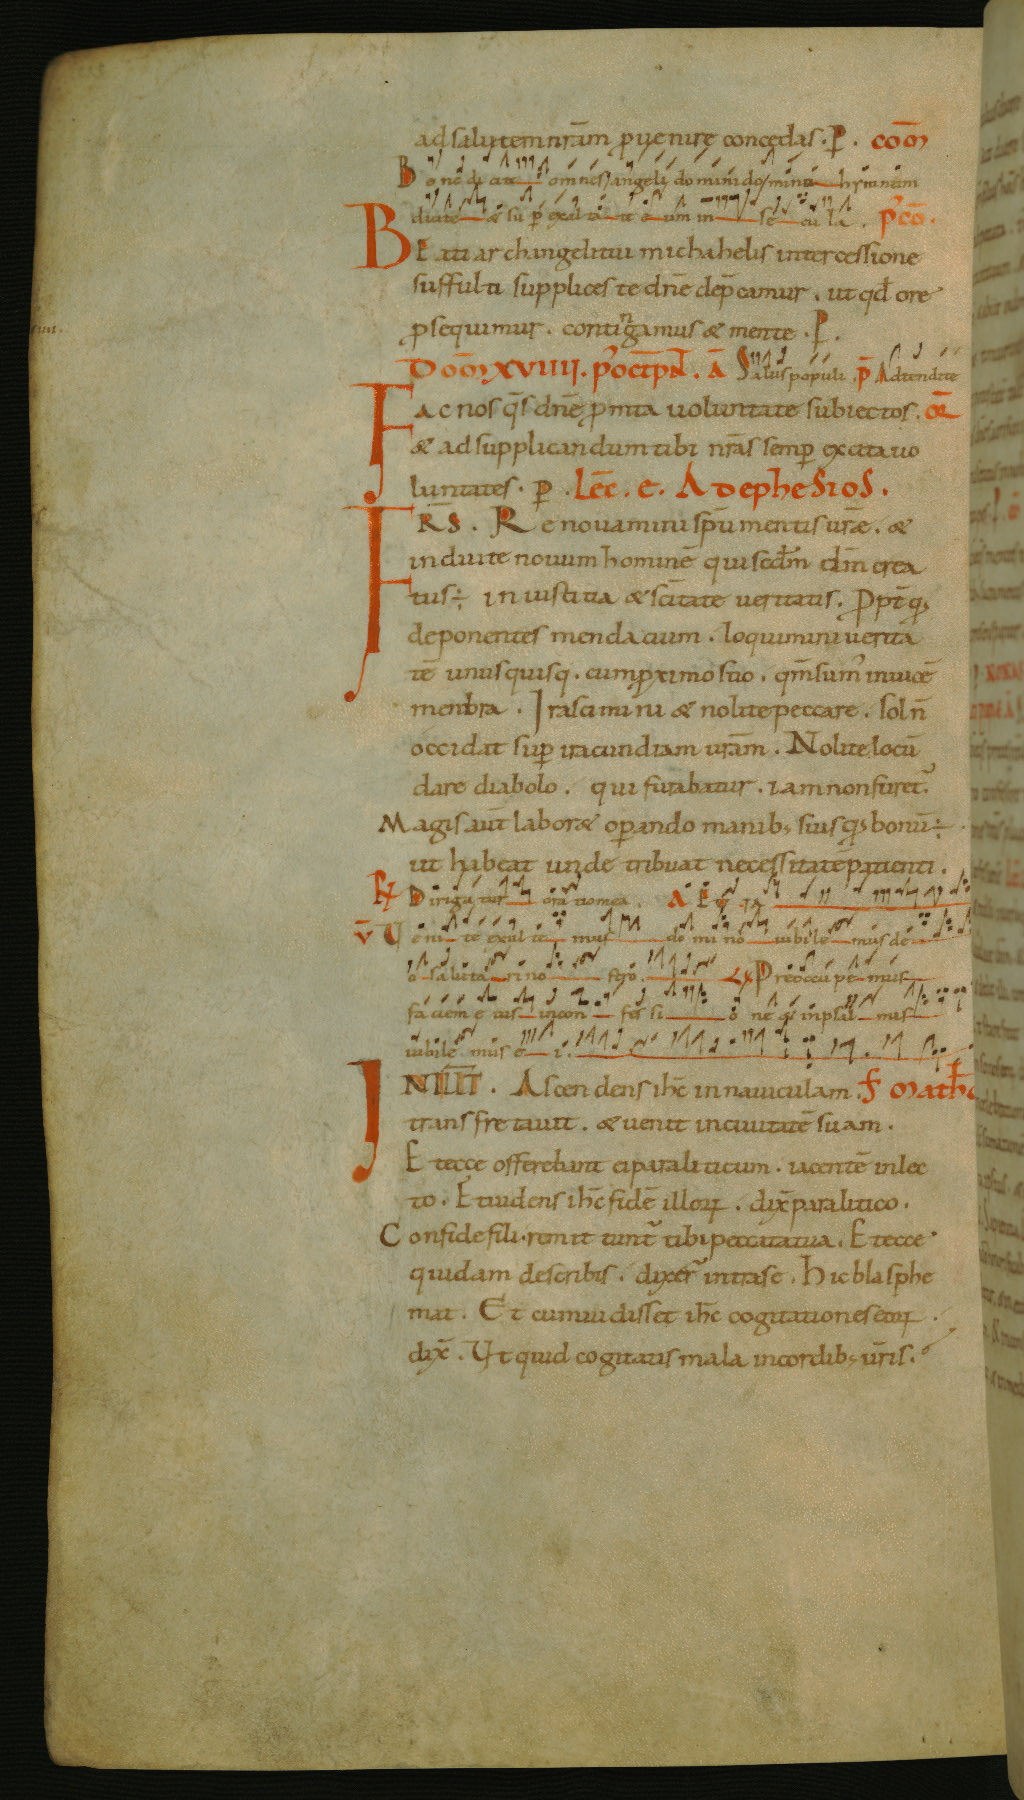 ad salutem nr̄am puenire concedas. P. coōm
Benedicite omnes angeli domini dominū hymnum
dicite & sup exaltate eum in secula. p̄cō.
Beati archangeli tui michahelis intercessione
suffulti supplices te dn̄e dep̄camur. ut qđ ore
psequimur. contingamus & mente. P.
Doōm XVIIII. p' oct̄ pn̄t. ā Salus populi. p̄ Adtendite
Fac nos q̄s dn̄e p̄mta uoluntate subiectos. or̄
& ad supplicandum tibi nr̄as semp excita uo
luntates. p. Lēc. e. Ad ephesios.
FRS̄. Renouamini sp̄u mentis ur̄ae. &
induite nouum hominē qui secd̄m dm̄ crea
tus; in iustitia & scītate ueritatis. Ppt̄ q;
deponentes mendacium. loquimini uerita
tē unusquisq. cum pximo suo. qm̄ sum' inuicē
menbra. Irascimini & nolite peccare. sol n̄
occidat sup iracundiam ur̄am. Nolite locū
dare diabolo. qui furabatur. iam non furet̄.
Magis aut̄ labor& operando manib; suis q; bonū;
ut habeat unde tribuat necessitatē patienti.
R Dirigatur oratio mea. A Euia
v̄ Uenite exultemus domino iubilemus dē
o salutari nr̄o. Preoccupemus
faciem eius in confessione & in psalmis
iubilemus ei.
IN ILLT. Ascendens ihc̄ in nauiculam. f̄ Math
transfretauit. & uenit in ciuitatē suam.
Et ecce offerebant ei paraliticum. iacentē in lec
to. Et uidens ihc̄ fidē illoꝝ. dix̄ paralitico.
Confide fili. remittunt̄ tibi peccata tua. Et ecce
quidam de scribis. dixer̄ intra se. Hic blasphe
mat. Et cum uidisset ihc̄ cogitationes eoꝝ.
dix̄. Ut quid cogitatis mala in cordib; ur̄is.